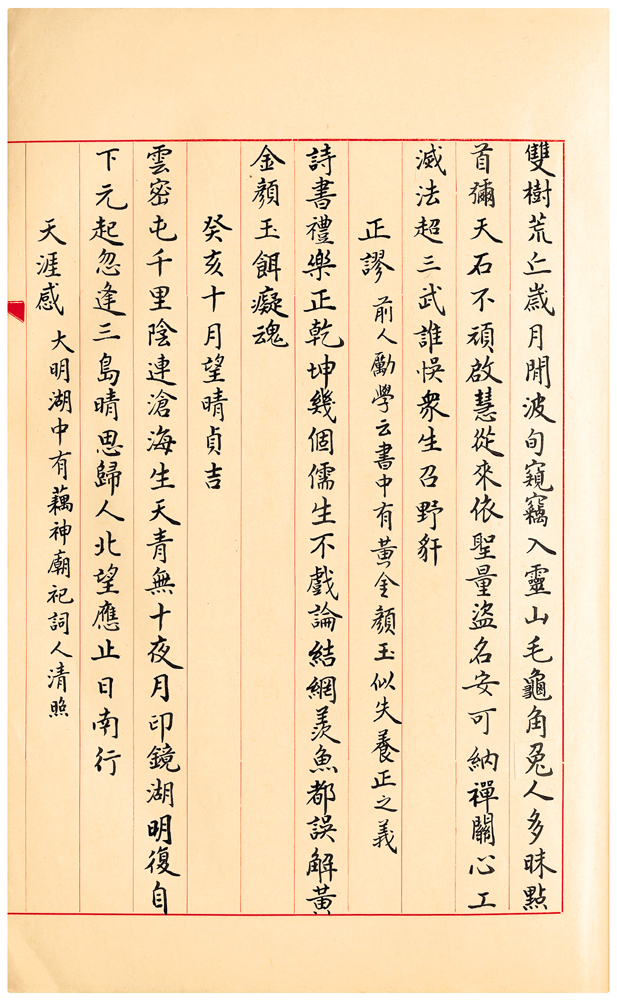 雙樹荒亡歲月閒波旬窺竊入靈山毛龜角兔人多昧點
首彌天石不頑啟慧從來依聖量盜名安可納禪關心工
滅法超三武誰悞衆生召野豻
正謬 前人勵學云書中有黃金顏玉似失養正之義
詩書禮樂正乾坤幾個儒生不戲論結網羨魚都誤解黃
金顏玉餌癡魂
癸亥十月望晴貞吉
雲密屯千里陰連滄海生天青無十夜月印鏡湖明復自
下元起忽逢三島晴思歸人北望應止日南行
天涯感 大明湖中有藕神廟祀詞人清照